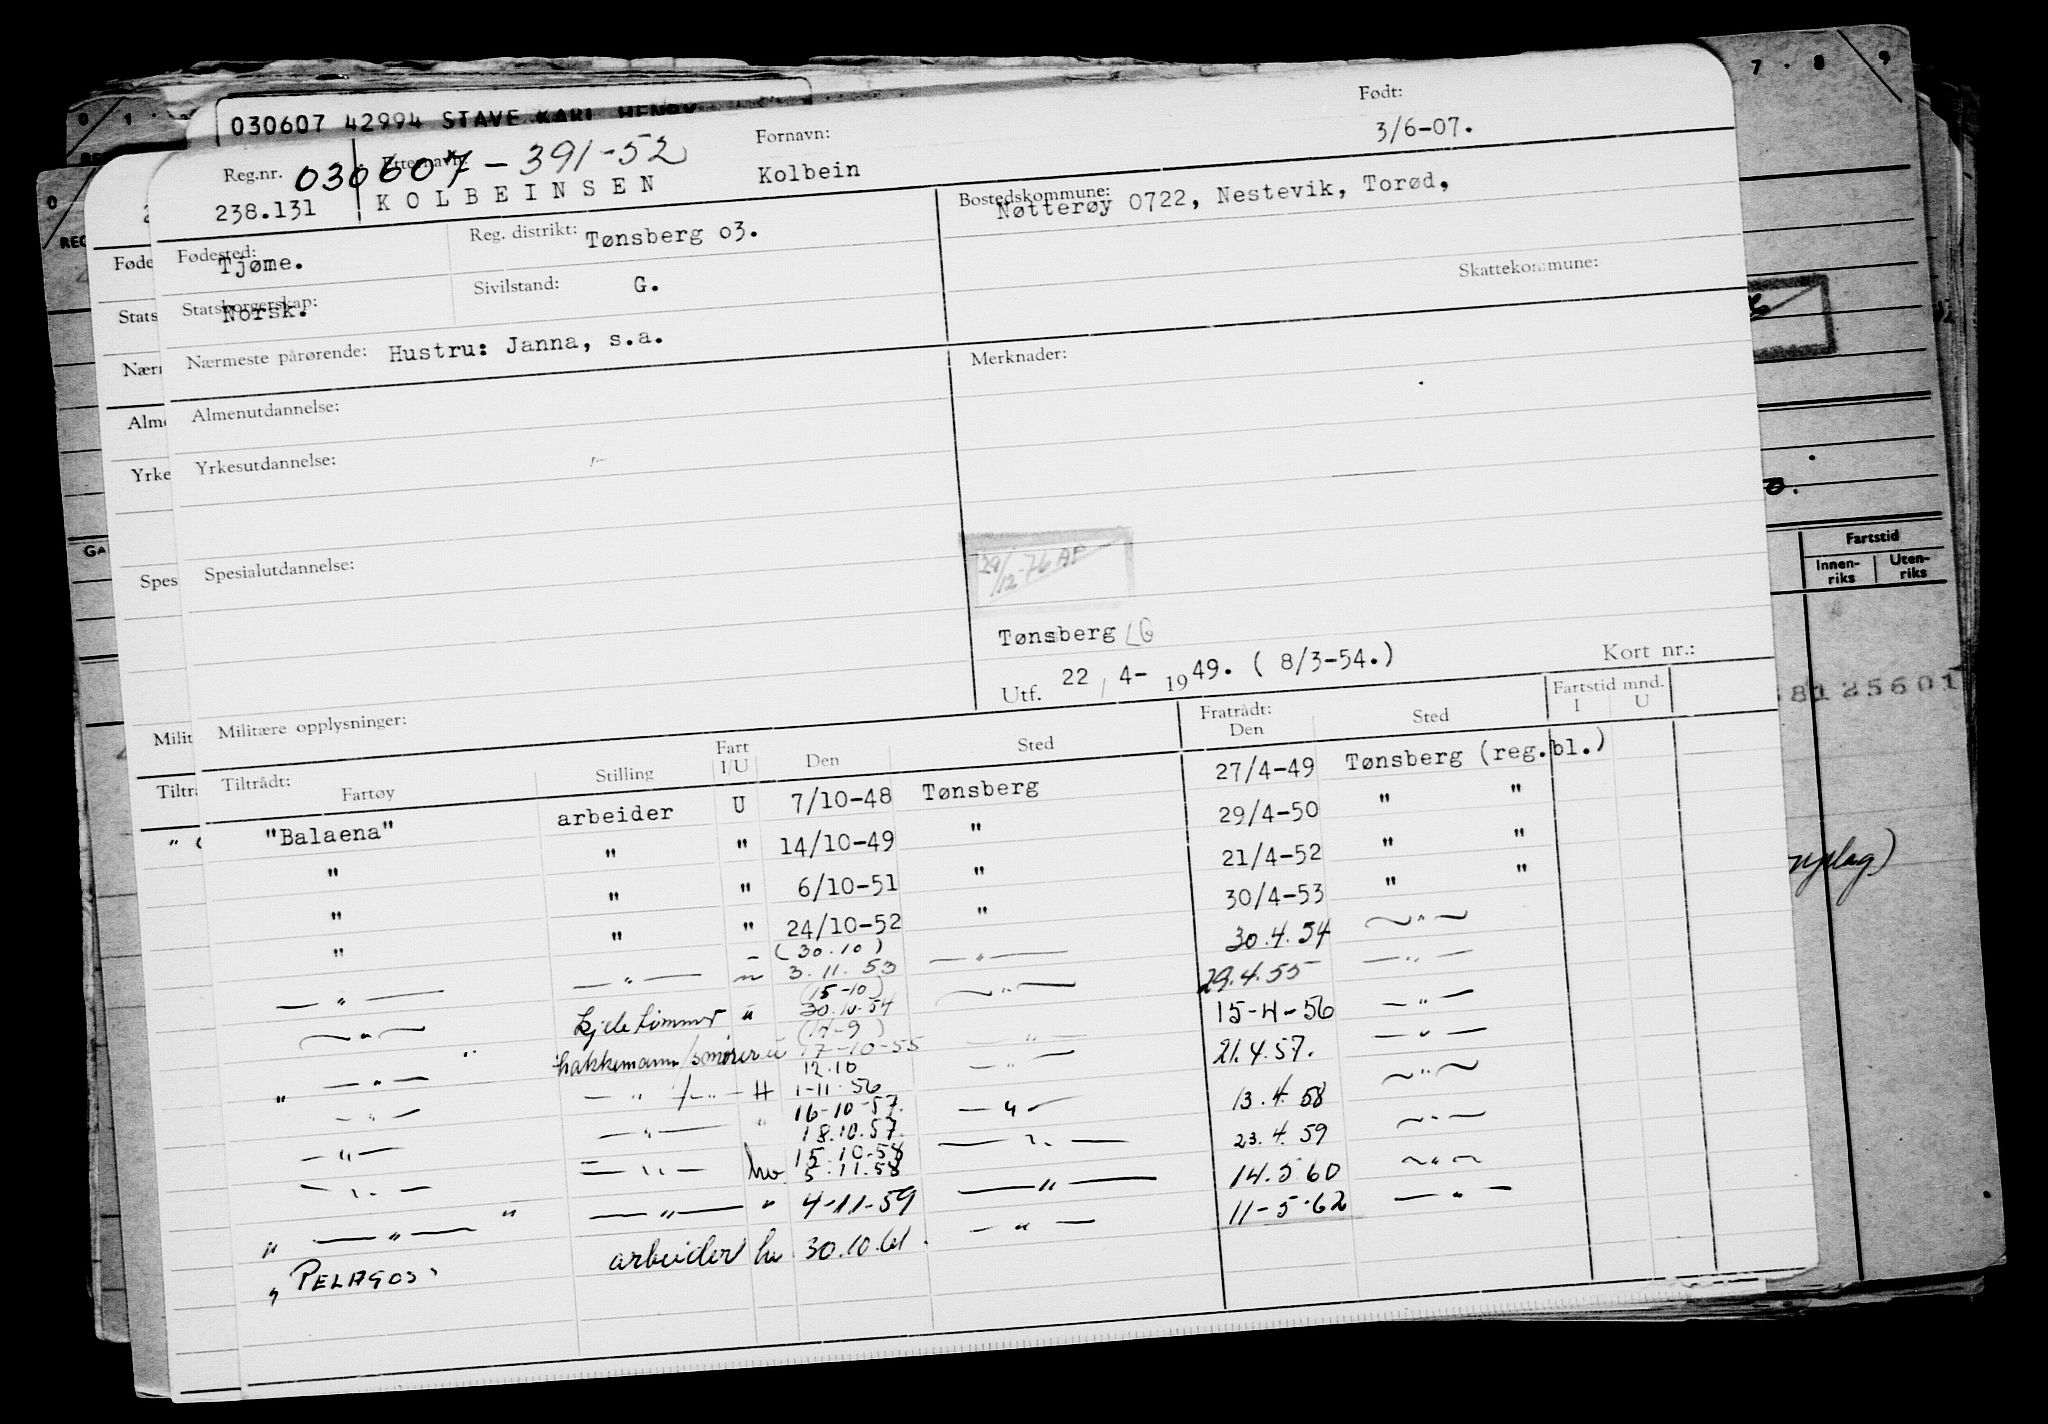 030607 42994 STAVE KARL HENRY
Født:
3/6-07.
Reg.nr. 030607-391-52
Etternavn:
Fornavn:
238.131 KOLBEINSEN Kolbein
Bostedskommune:
Nøtterøy 0722, Nestevik, Torød,
Fødested: Tjøme.
Reg. distrikt: Tønsberg 03.
Statsborgerskap: Norsk.
Sivilstand: G.
Skattekommune:
Nærmeste pårørende: Hustru: Janna, s.a.
Merknader:
Almenutdannelse:
Yrkesutdannelse:
Spesialutdannelse:
29/12-76 AF
Tønsberg LG
Utf. 22 / 4- 1949. ( 8/3-54.)
Kort nr.:
Militære opplysninger:
Tiltrådt:
Fartøy Stilling Fart I/U Den Sted
Fratrådt:
Den Sted Fartstid mnd.
I U
"Balaena" arbeider U 7/10-48 Tønsberg 27/4-49 Tønsberg (reg.bl.)
" " " 14/10-49 " 29/4-50 " "
" " " 6/10-51 " 21/4-52 " "
" " " 24/10-52 " 30/4-53 " "
(30.10)
— " — — " — " 3.11.53 — " — 30.4.54 — " —
(15-10)
— " — kjeletømmer " 30.10.54 — " — 29.4.55 — " —
(14-9)
" — " — " hakkemann/smører u 17-10-55 — " — 15-4-56 — " —
12.10
— " — — " — /— " — H 1-11-56 — " — 21.4.57. — " —
16-10-57.
— " — — " — " 18.10.57. — " — 13.4.58 — " —
15.10.58
— " — — " — hv 5.11.58 — " — 23.4.59 — " —
" — " — " — " — " 4-11-59 — " — 14.5 60 — " —
" PELAGOS " arbeider hv 30.10.61. — " — 11-5-62 — " —
0 . 1
7 . 8 . 9
0
REG
Føde
Stats
Nærr
Alme
Yrke
Spes
Milit
Tiltr
GA
Fartstid
Innen-
riks
Uten-
riks
8125601